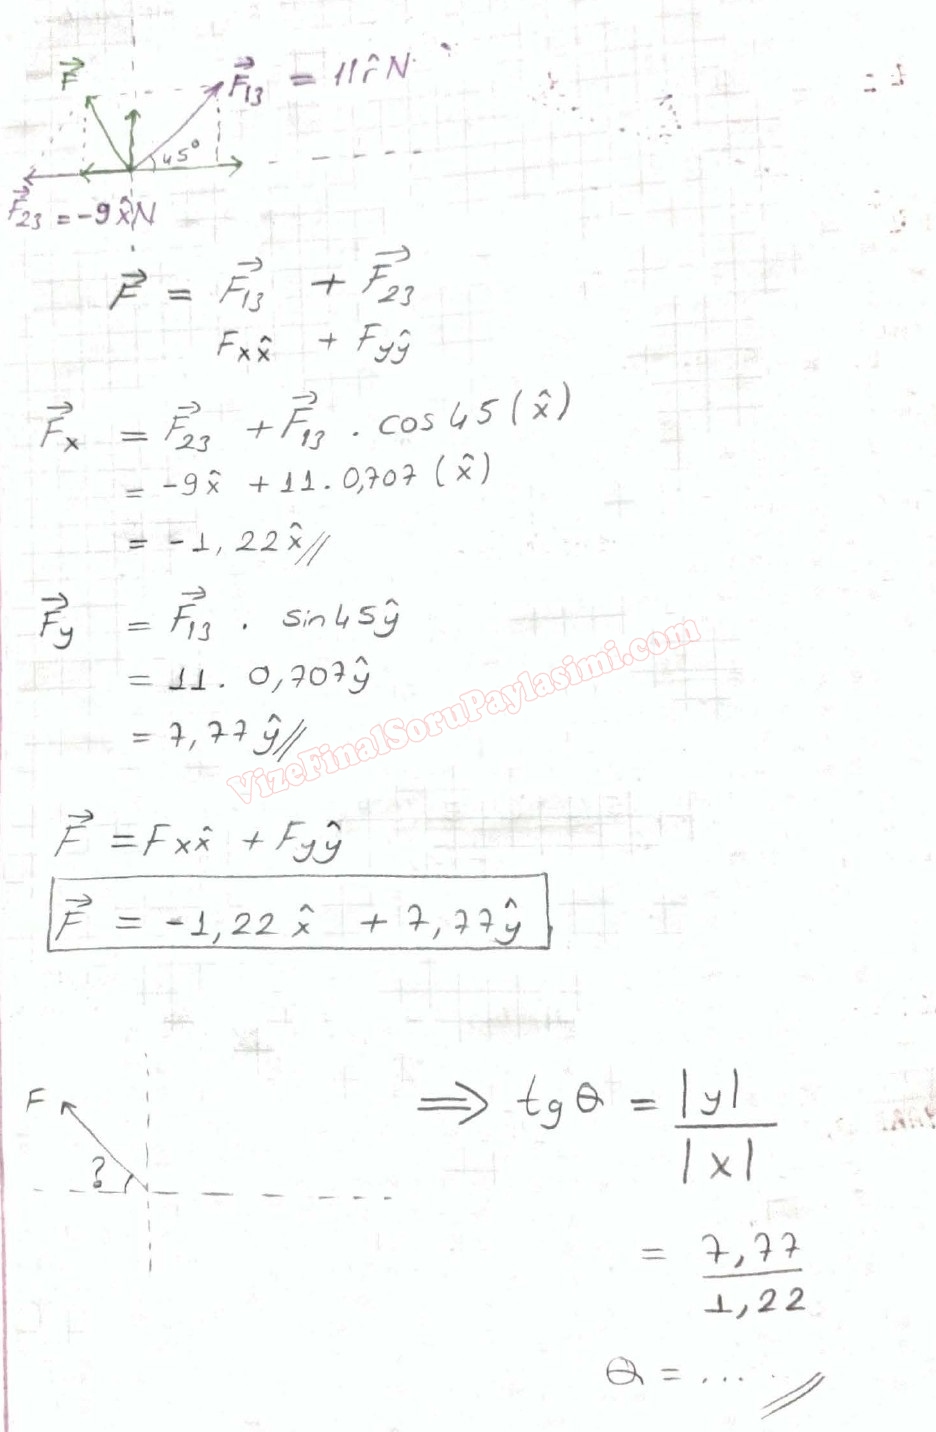 F⃗
F⃗13 = 11r̂ N
45°
F⃗23 = -9x̂N
F⃗ = F⃗13 + F⃗23
Fxx̂ + Fyŷ
F⃗x = F⃗23 + F⃗13 . cos45(x̂)
= -9x̂ + 11.0,707(x̂)
= -1,22x̂//
F⃗y = F⃗13 . sin45ŷ
= 11. 0,707ŷ
= 7,77ŷ//
VizeFinalSoruPaylasimi.com
F⃗ = Fxx̂ + Fyŷ
F⃗ = -1,22x̂ + 7,77ŷ
F
?
⇒ tgθ = |y| / |x|
= 7,77 / 1,22
θ = .... //